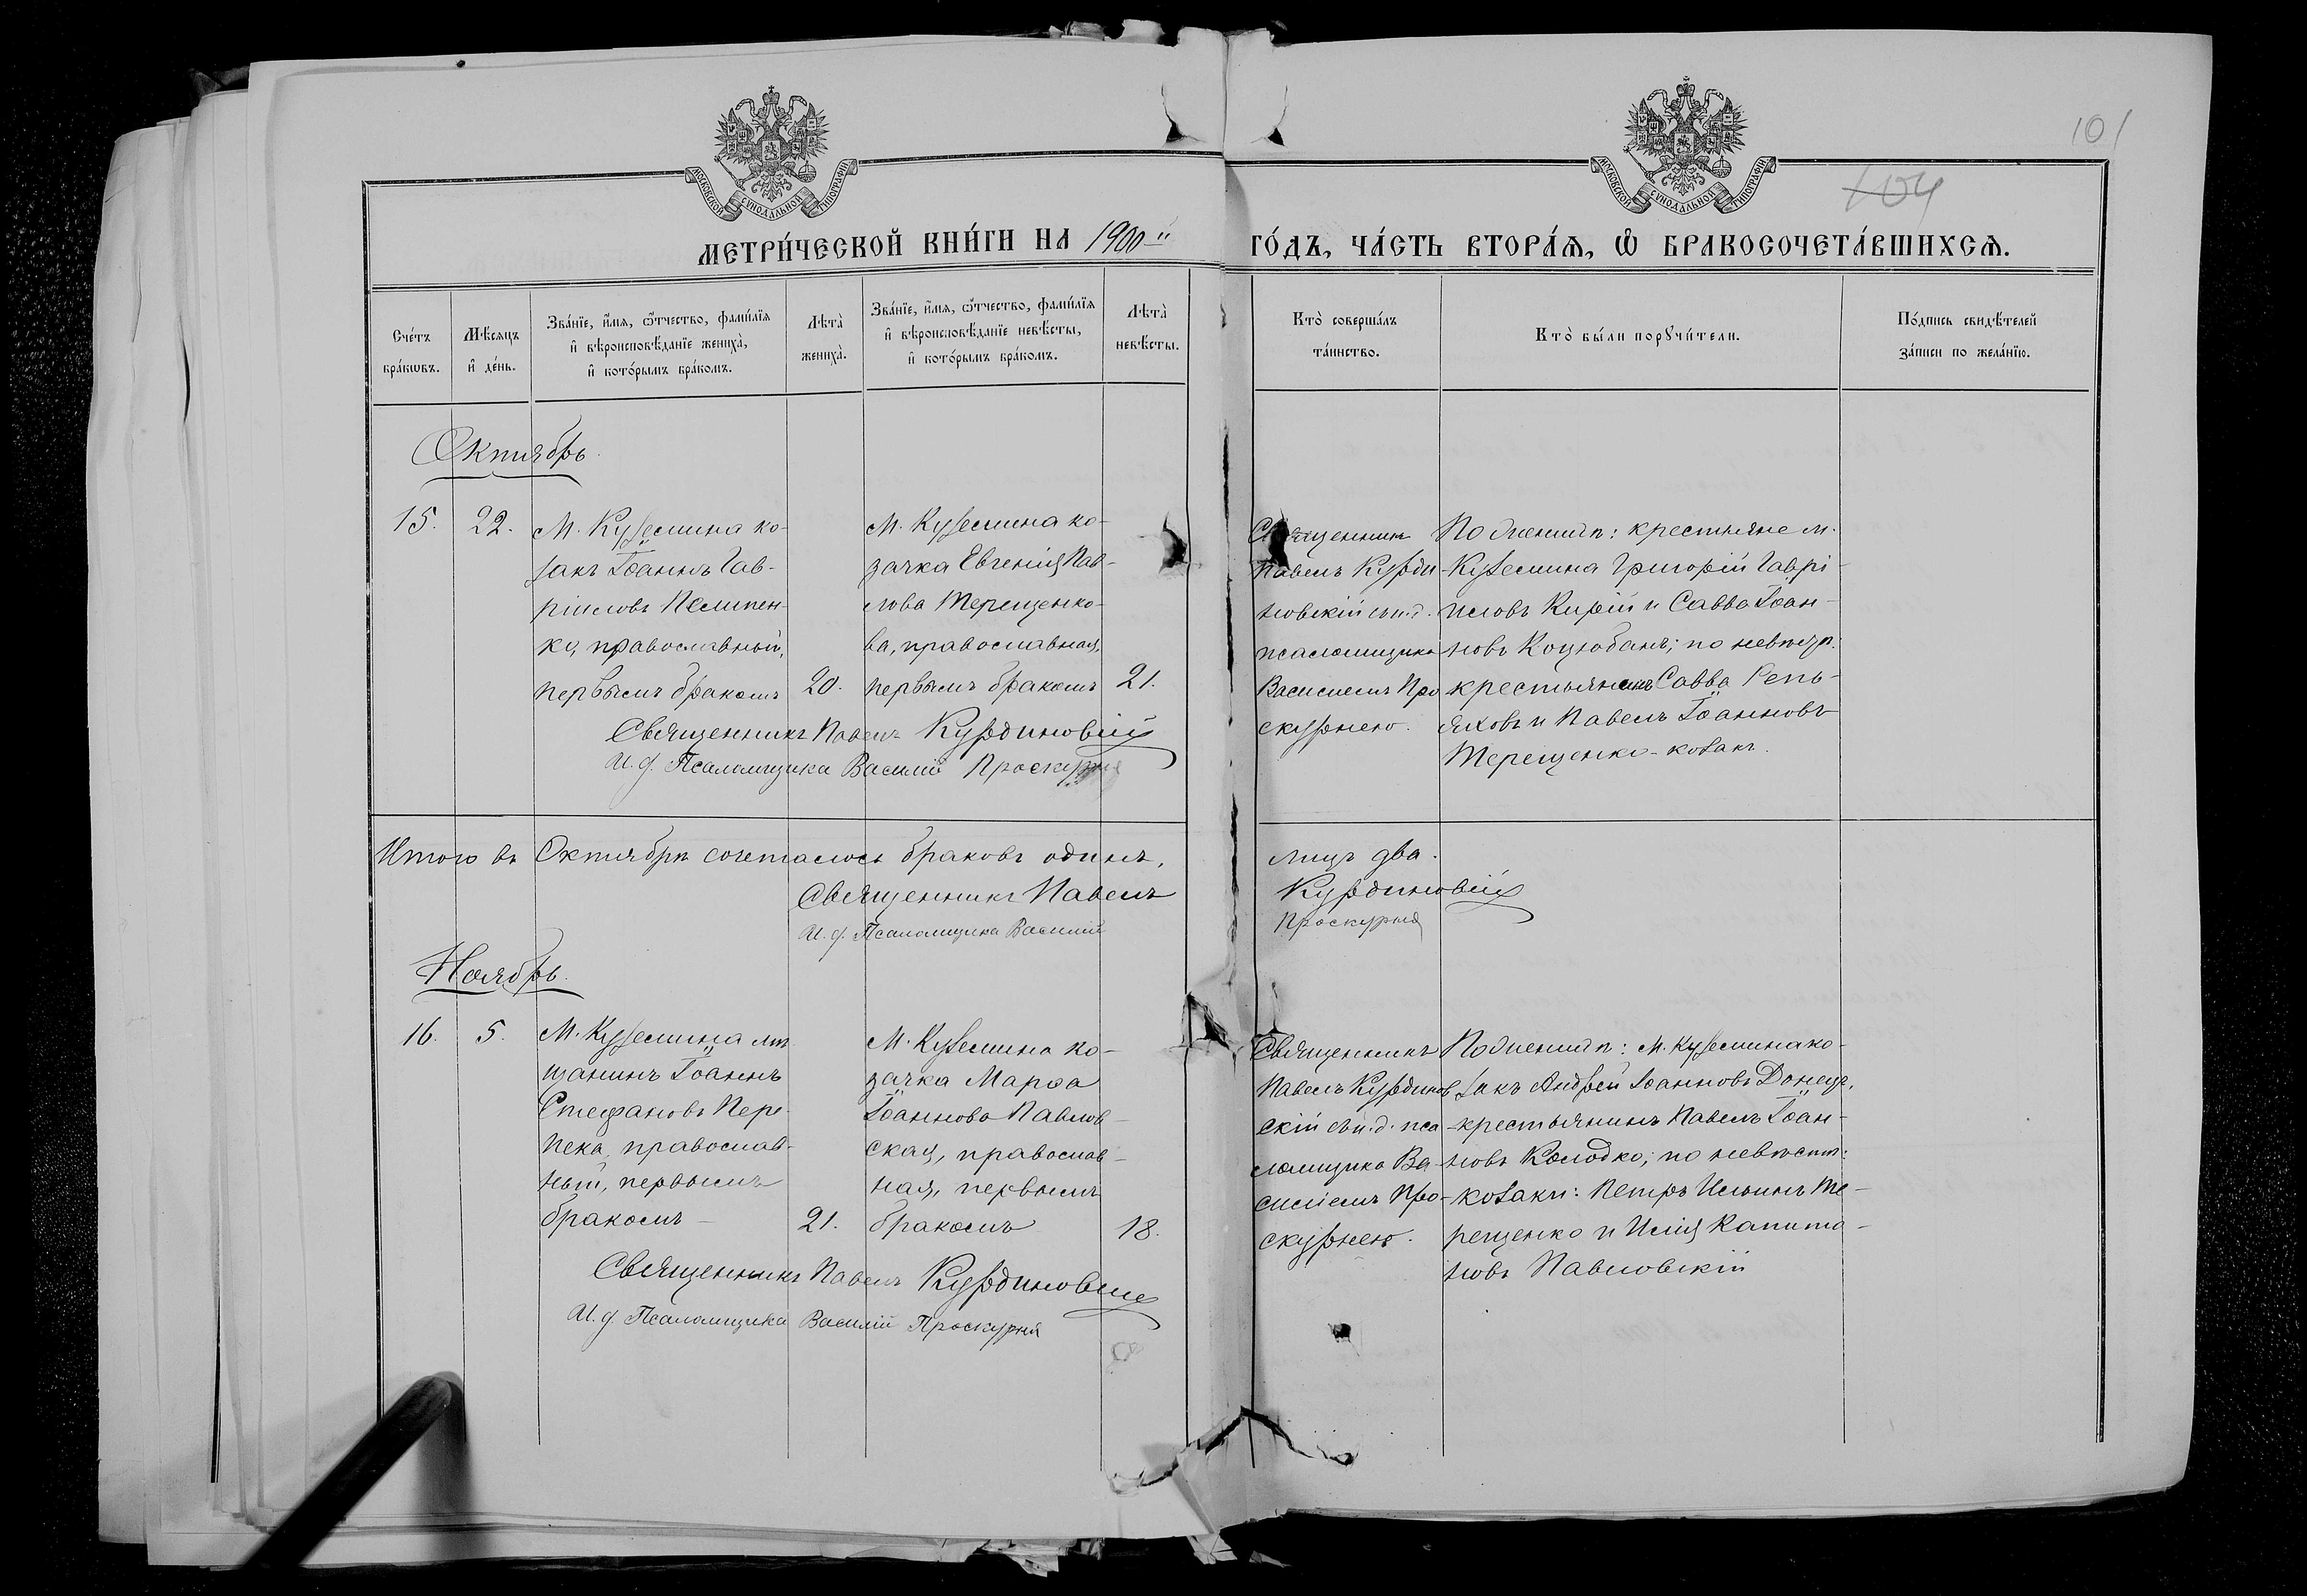 101
104
МОСКОВСКОЙ СѴНОДАЛЬНОЙ ТИПОГРАФІИ
МОСКОВСКОЙ СѴНОДАЛЬНОЙ ТИПОГРАФІИ
МЕТРИ́ЧЕСКОЙ КНИ́ГИ НА 1900 ГО́ДЪ, ЧА́СТЬ ВТОРА́Ѧ, Ѽ БРАКОСОЧЕТА́ВШИХСѦ.
Сче́тъ
бра́кѡвъ.
Мѣ́сѧцъ
и҆ де́нь.
Зва́нїе, и҆́мѧ, ѻ҆́тчество, фамилі́ѧ
и҆ вѣроисповѣ́данїе жениха̀,
и҆ кото́рымъ бра́комъ.
Лѣта̀
жениха̀.
Зва́нїе, и҆́мѧ, ѻ҆́тчество, фамилі́ѧ
и҆ вѣроисповѣ́данїе невѣ́сты,
и҆ кото́рымъ бра́комъ.
Лѣта̀
невѣ́сты.
Кто̀ соверша́лъ
та́инство.
Кто̀ бы́ли порꙋчи́тели.
По́дпись свидѣ́телей
за́писи по жела́нїю.
Октябрь
15.
22.
М. Куземина ко-
закъ Іоаннъ Гав-
ріиловъ Пелипен-
ко, православный,
первымъ бракомъ
20.
М. Куземина ко-
зачка Евгенія Пав-
лова Терещенко-
ва, православная,
первымъ бракомъ
21.
Священникъ
Павелъ Курди-
новскій съ и.д.
псаломщика
Василіемъ Про
скурнею.
По женихѣ: крестьяне м.
Куземина Григорій Гаврі-
иловъ Кирій и Савва Іоан-
новъ Коцюбанъ; по невѣстѣ:
крестьянинъ Савва
и Павелъ Іоанновъ
Терещенко-козакъ.
Священникъ Павелъ Курдиновскій
И. д. Псаломщика Василій Проскурня
Итого въ Октябрѣ сочеталось браковъ одинъ, лицъ два.
Священникъ Павелъ Курдиновскій
И. д. Псаломщика Василій Проскурня
Ноябрь
16.
5.
М. Куземина мѣ
щанинъ Іоаннъ
Стефановъ Пере-
пека, православ-
ный, первымъ
бракомъ
21.
М. Куземина ко-
зачка Марѳа
Іоаннова Павлов-
ская, православ-
ная, первымъ
бракомъ
18.
Священникъ
Павелъ Курдинов
скій съ и.д. пса
ломщика Ва-
силіемъ Про-
скурнею.
По женихѣ: м. Куземина ко-
закъ Андрей Іоанновъ Донецъ,
крестьянинъ Павелъ Іоан-
новъ Колодко; по невѣстѣ:
козаки: Петръ Ильинъ Те-
рещенко и Илія Капито-
новъ Павловскій
Священникъ Павелъ Курдиновскій
И. д. Псаломщика Василій Проскурня